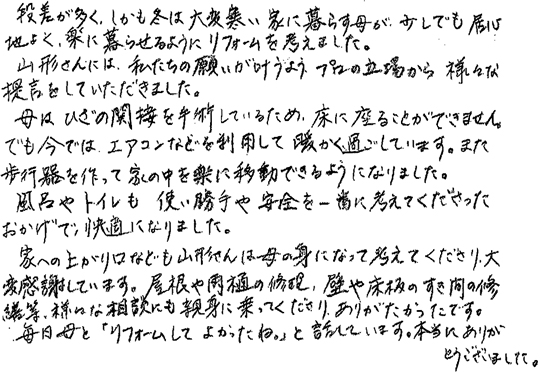 段差が多く、しかも冬は大変寒い家に暮らす母が、少しでも居心
地よく、楽に暮らせるようにリフォームを考えました。
山形さんには、私たちの願いが叶うよう、プロの立場から様々な
提言をしていただきました。
母は、ひざの関接を手術しているため、床に座ることができません。
でも今では、エアコンなどを利用して暖かく過ごしています。また
歩行器を作って家の中を楽に移動できるようになりました。
風呂やトイレも使い勝手や安全を一番に考えてくださった
おかげで、快適になりました。
家への上がり口なども山形さんは母の身になって考えてくださり、大
変感謝しています。屋根や雨樋の修理、壁や床板のすき間の修
繕等、様々な相談にも親身に乗ってくださり、ありがたかったです。
毎日母と「リフォームしてよかったね。」と話しています。本当にありが
とうございました。